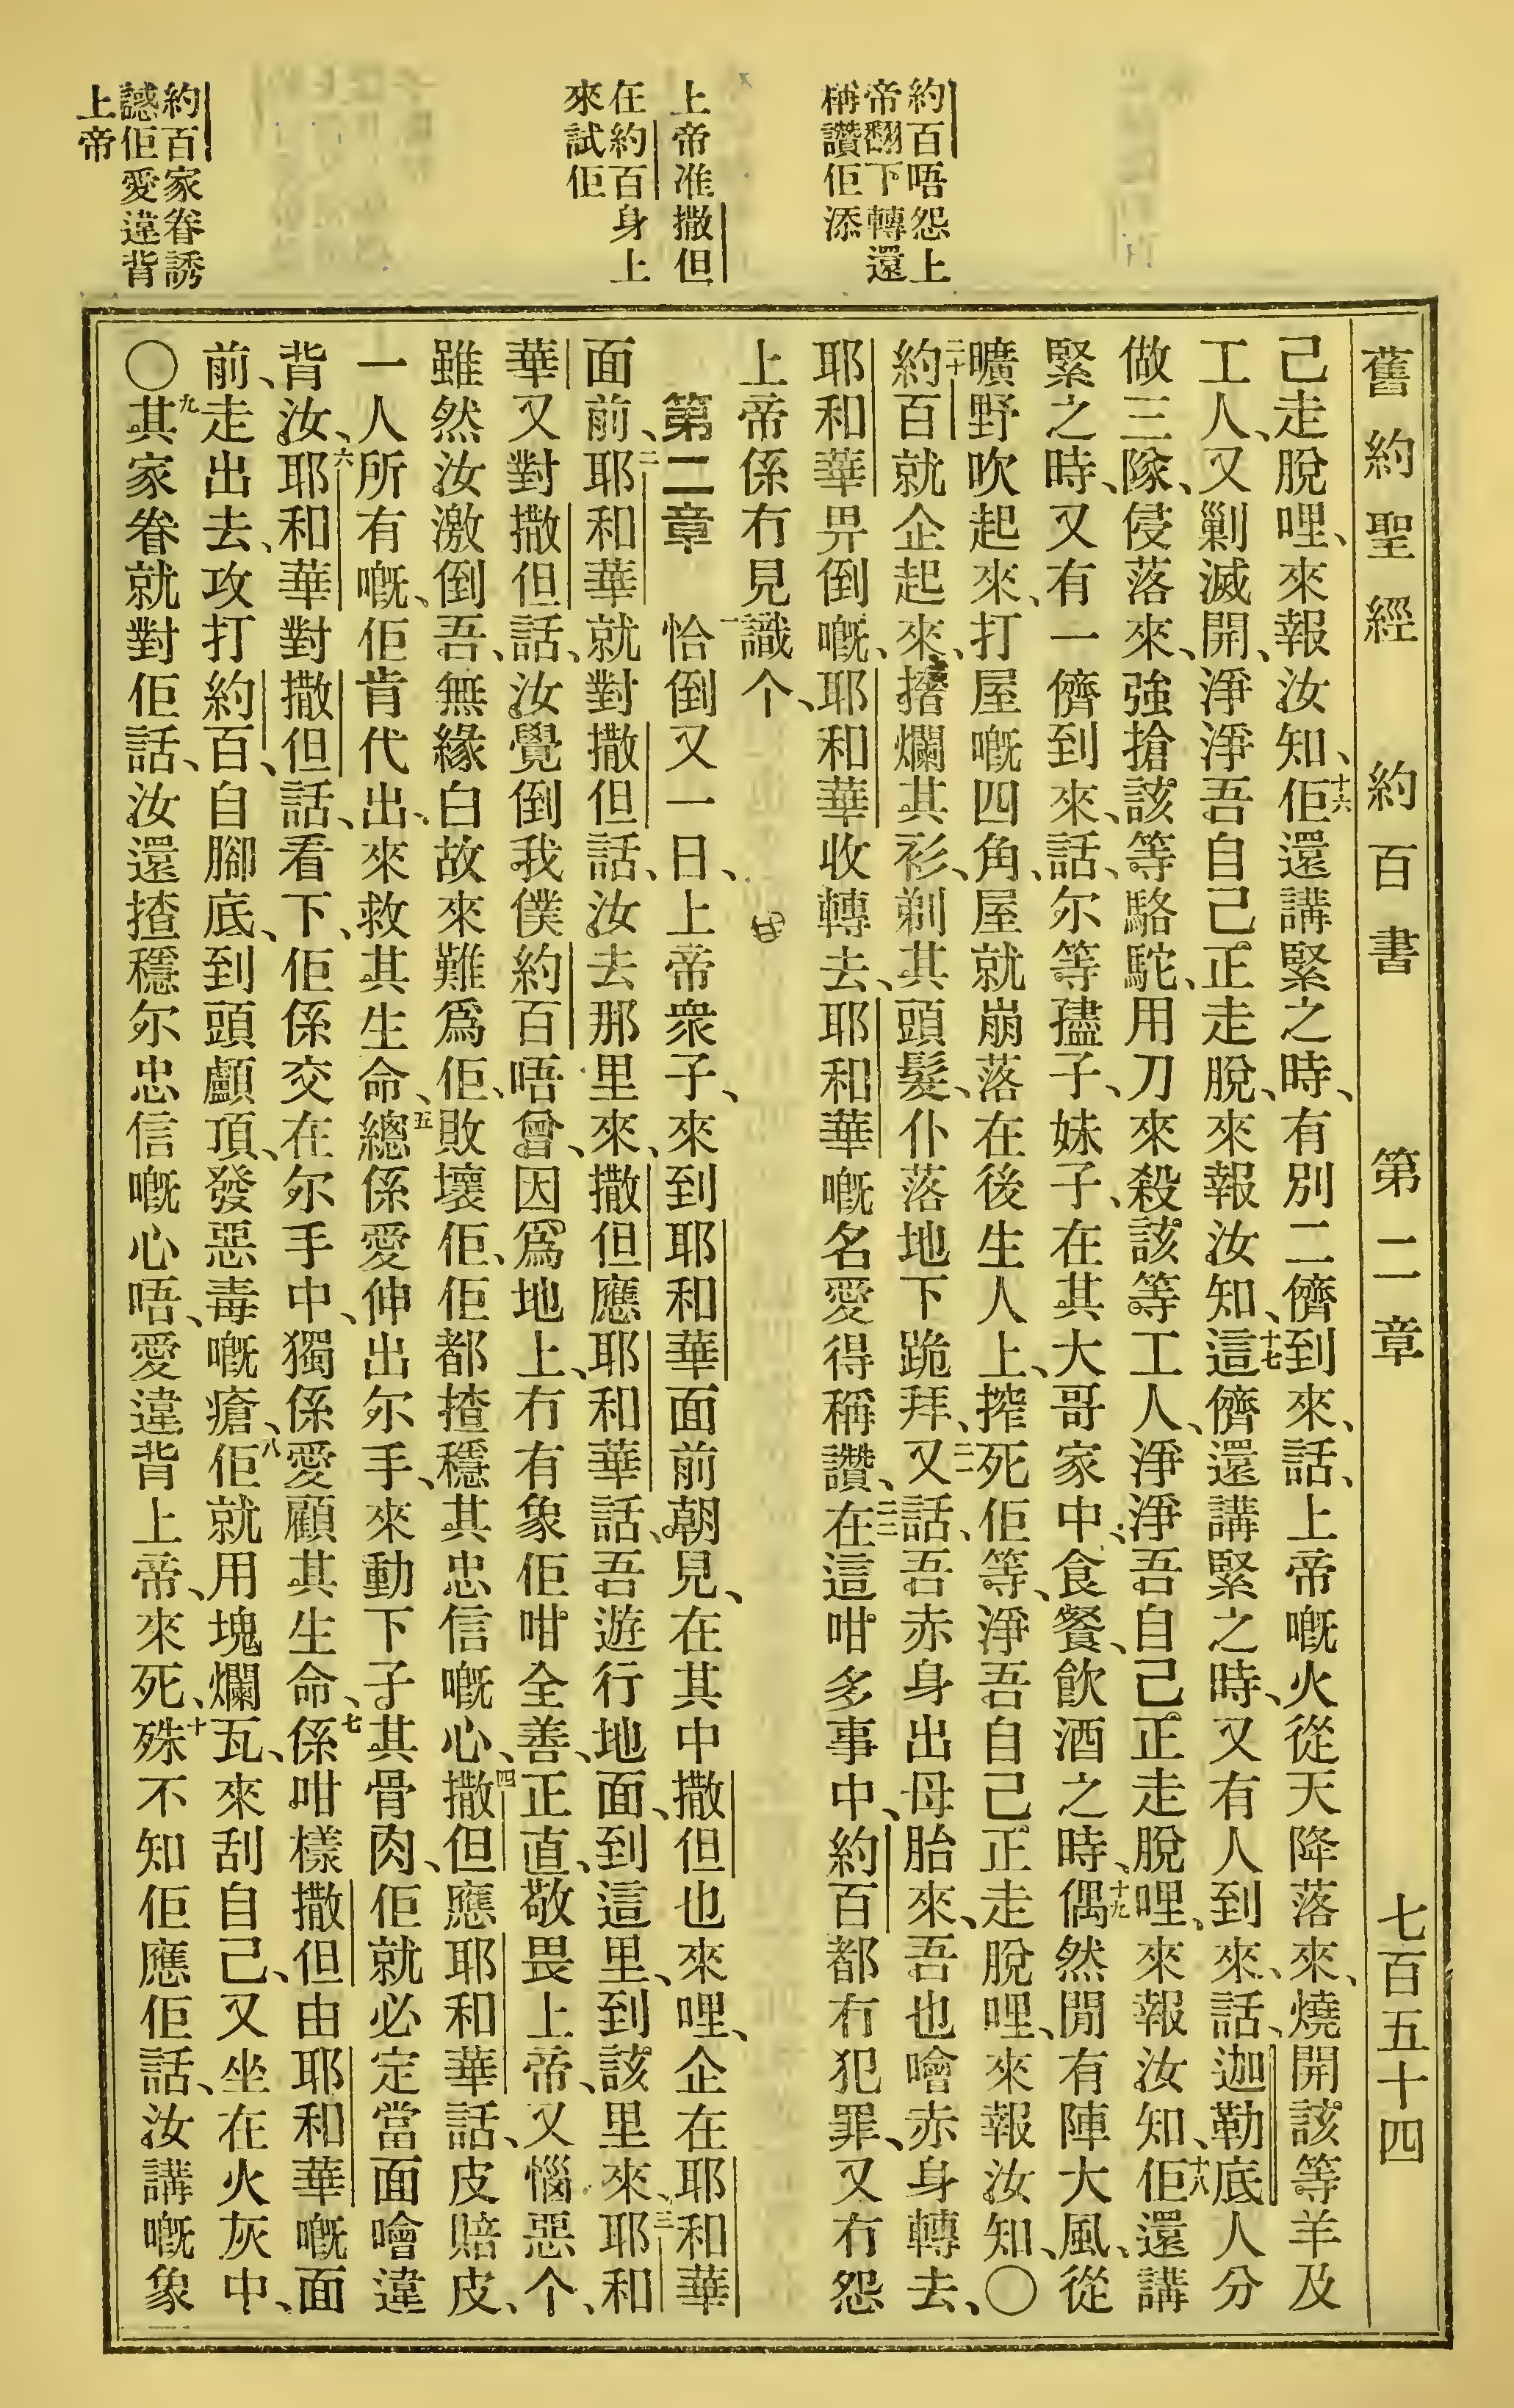 約百唔怨上
帝翻下轉還
稱讚佢添
上帝准撒但
在約百身上
來試佢
約百家眷誘
讔佢愛違背
上帝
舊約聖經 約百書 第二章 七百五十四
己走脫哩、來報汝知、十六佢還講緊之時、有別二儕到來、話、上帝嘅火從天降落來、燒開該等羊及
工人、又剿滅開、淨淨吾自己正走脫、來報汝知、十七這儕還講緊之時、又有人到來、話、迦勒底人分
做三隊、侵落來、強搶該等駱駝、用刀來殺該等工人、淨淨吾自己正走脫哩、來報汝知、十八佢還講
緊之時、又有一儕到來、話、尔等孻子、妹子、在其大哥家中、食餐、飲酒之時、十九偶然閒有陣大風、從
曠野吹起來、打屋嘅四角、屋就崩落在後生人上、搾死佢等、淨吾自己正走脫哩、來報汝知、〇
二十約百就企起來、撦爛其衫、剃其頭髮、仆落地下跪拜、二一又話、吾赤身出母胎來、吾也噲赤身轉去、
耶和華畀倒嘅、耶和華收轉去、耶和華嘅名愛得稱讚、二二在這咁多事中、約百都冇犯罪、又冇怨
上帝係冇見識个、
第二章 一恰倒又一日、上帝衆子、來到耶和華面前朝見、在其中撒但也來哩、企在耶和華
面前、二耶和華就對撒但話、汝去那里來、撒但應耶和華話、吾遊行地面、到這里、到該里來、三耶和
華又對撒但話、汝覺倒我僕約百唔曾、因爲地上、冇有象佢咁全善、正直、敬畏上帝、又惱惡个、
雖然汝激倒吾、無緣白故來難爲佢、敗壞佢、佢都揸穩其忠信嘅心、四撒但應耶和華話、皮賠皮、
一人所有嘅、佢肯代出、來救其生命、五總係愛伸出尔手、來動下子其骨肉、佢就必定當面噲違
背汝、六耶和華對撒但話、看下、佢係交在尔手中、獨係愛顧其生命、七係咁樣撒但由耶和華嘅面
前、走出去、攻打約百、自腳底、到頭顱頂、發惡毒嘅瘡、八佢就用塊爛瓦、來刮自己、又坐在火灰中、
〇九其家眷就對佢話、汝還揸穩尔忠信嘅心唔、愛違背上帝、來死、十殊不知佢應佢話、汝講嘅象